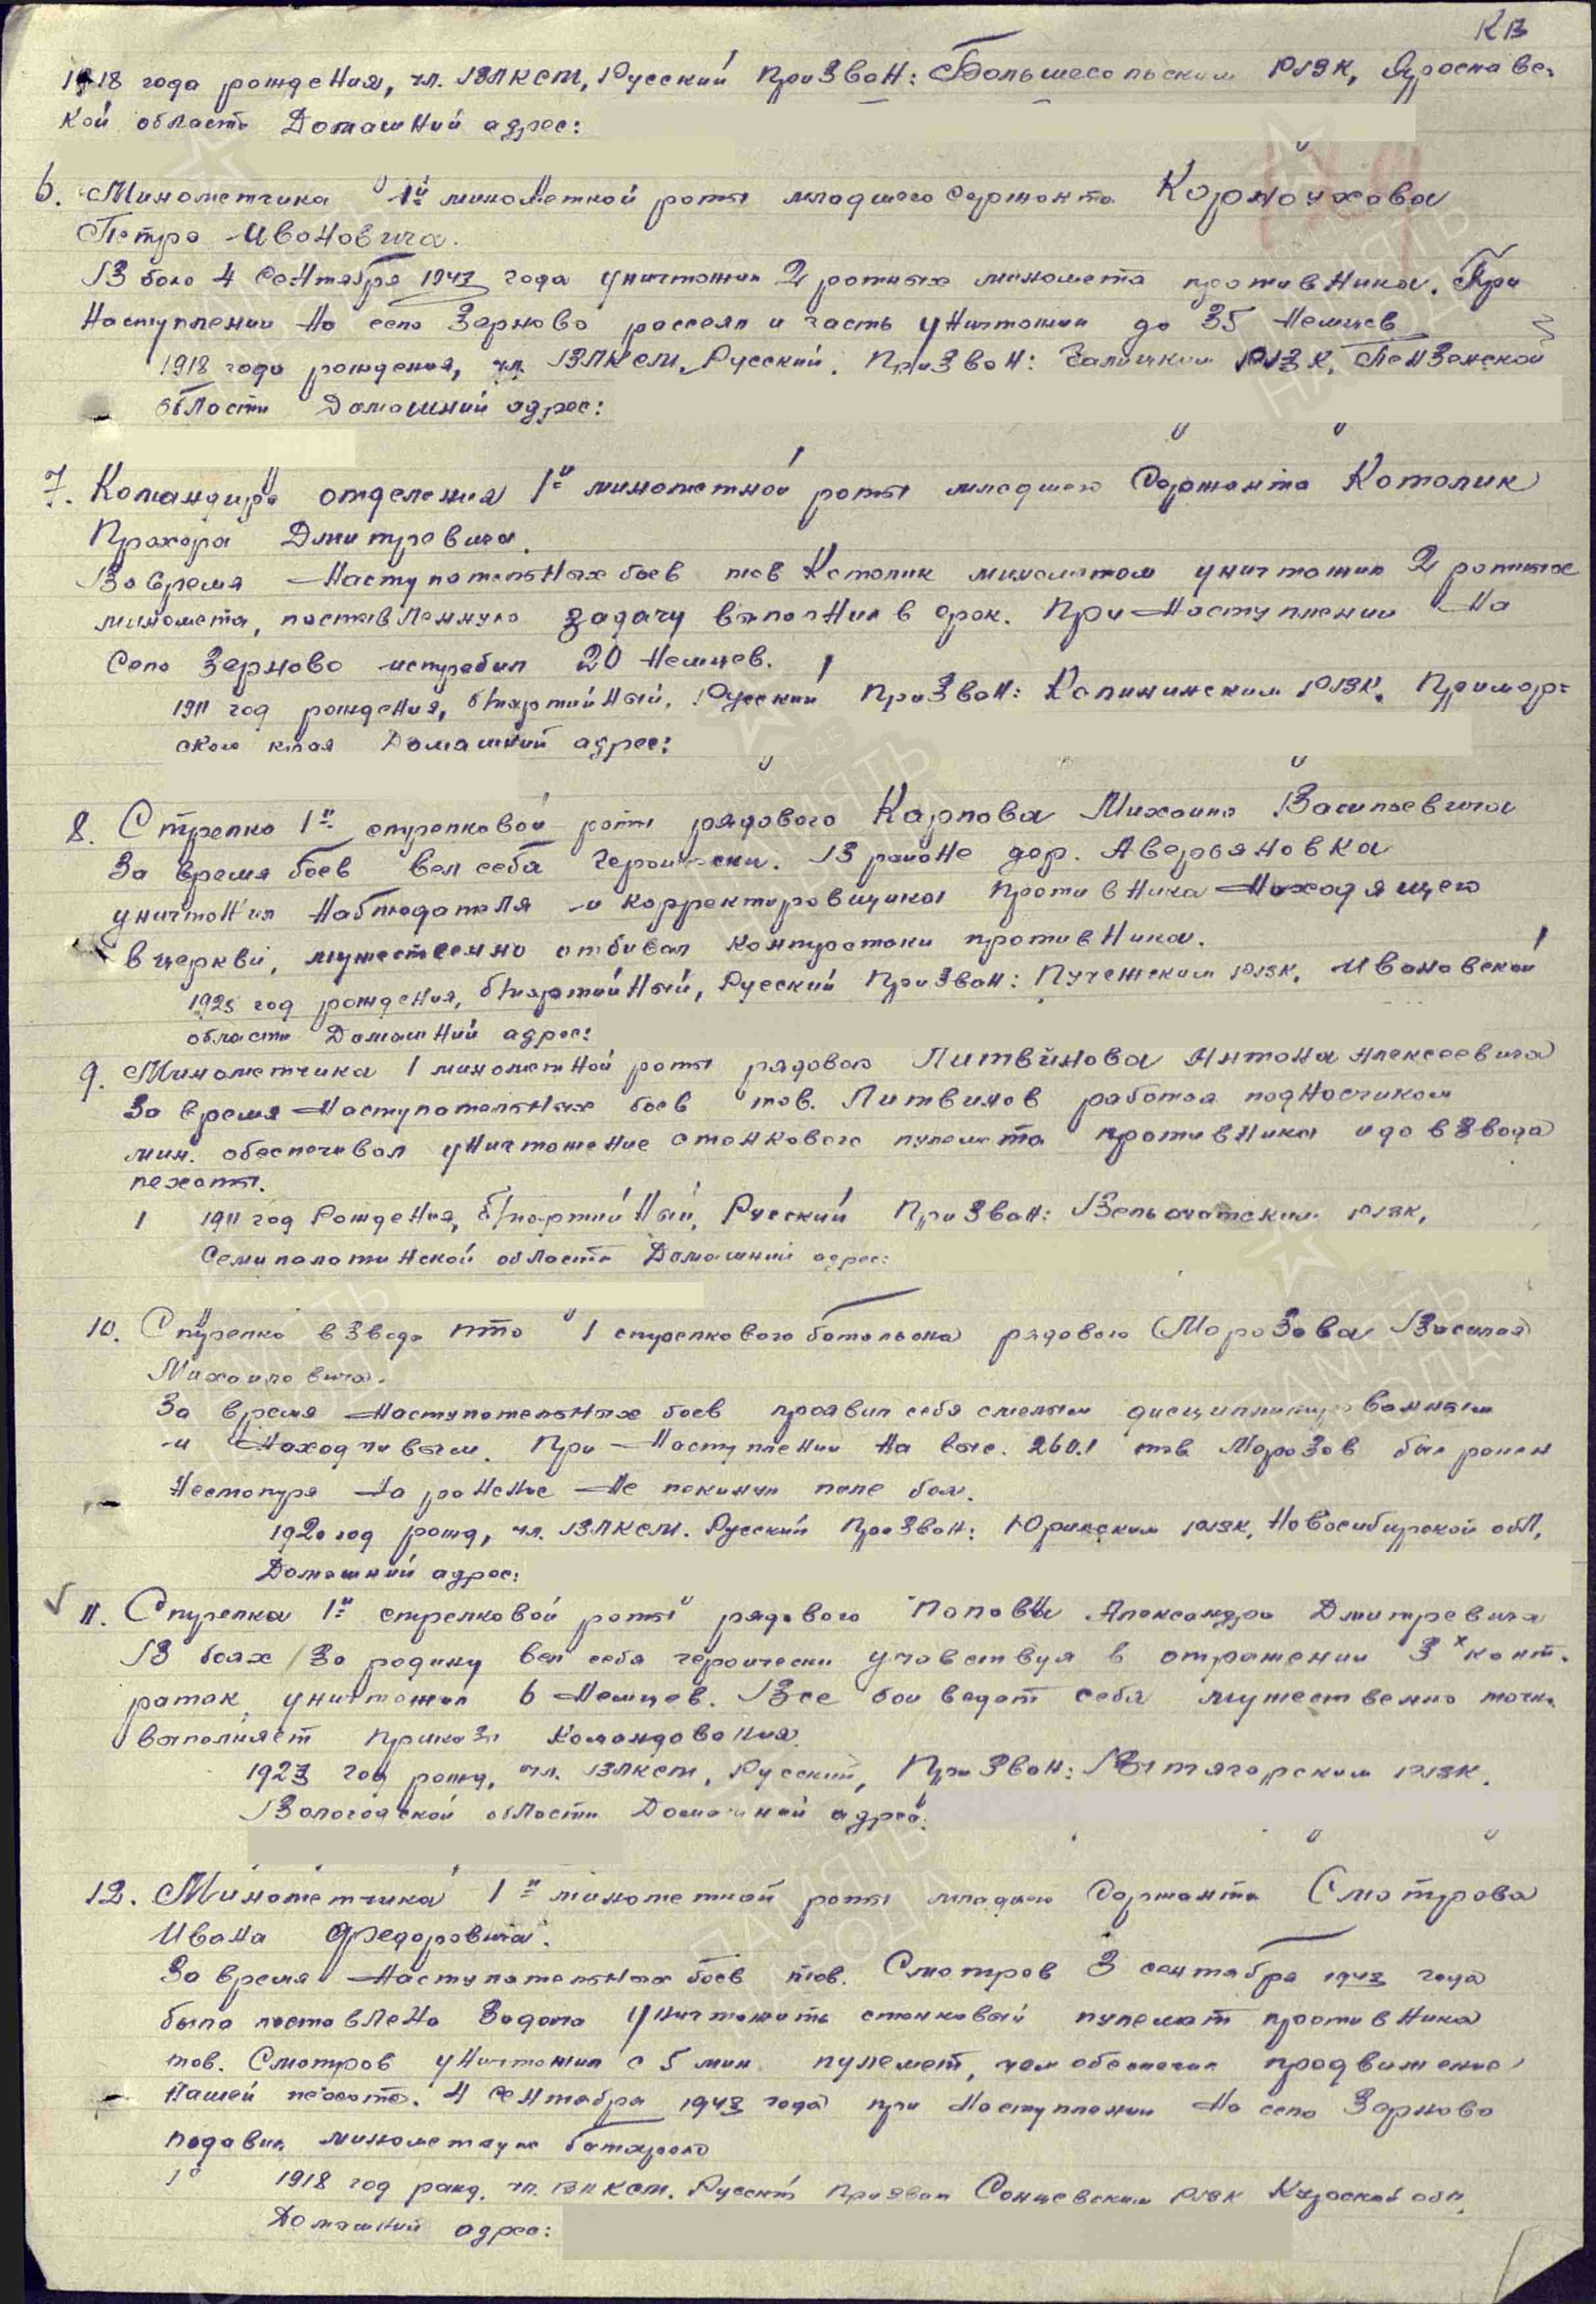 КВ
1918 года рождения, чл. ВЛКСМ, Русский Призван: Большесольским РВК, Ярославс-
кой области Домашний адрес:
6. Минометчика 1й минометной роты младшего сержанта Карпочхова
Петра Ивановича.
В бою 4 сентября 1943 года уничтожил 2 ротных миномета противника. При
Наступлении на село Зерново рассеял и часть уничтожил до 35 немцев
1918 года рождения, чл. ВЛКСМ, Русский. Призван: Галицким РВК, Пензенской
области Домашний адрес:
7. Командира отделения 1й минометной роты младшего сержанта Католик
Прохора Дмитревича.
Во время наступательных боев тов Католик минометом уничтожил 2 ротных
миномета, поставленную задачу выполнил в срок. При наступлении на
село Зерново истребил 20 немцев.
1911 год рождения, б/партийный, Русский Призван: Калининским РВК, Примор-
ского края Домашний адрес:
8. Стрелка 1й стрелковой роты рядового Карпова Михаила Васильевича
За время боев вел себя героически. В районе дер. Аверьяновка
уничтожил наблюдателя и корректировщика противника находящего
в церкви, мужественно отбивал контратаки противника.
1925 год рождения, б/партийный, Русский Призван: Пучежским РВК, Ивановской
области Домашний адрес:
9. Минометчика 1 минометной роты рядового Литвинова Антона Алексеевича
За время наступательных боев тов. Литвинов работая подносчиком
мин. обеспечивал уничтожение станкового пулемета противника и до взвода
пехоты.
1911 год Рождения, б/партийный, Русский Призван: РВК,
Семипалатинской области Домашний адрес:
10. Стрелка взвода ПТО 1 стрелкового батальона рядового Морозова Василия
Михайловича.
За время наступательных боев проявил себя смелым дисциплинированным
и находчивым. При наступлении на выс. 260.1 тов Морозов был ранен
несмотря на ранение не покинул поле боя.
1920 год рожд, чл. ВЛКСМ. Русский Призван: Юргинским РВК, Новосибирской обл,
Домашний адрес:
11. Стрелка 1й стрелковой роты рядового Поповы Александра Дмитревича
В боях за родину вел себя героически участвуя в отражении 3х конт-
ратак, уничтожил 6 немцев. Все бои ведет себя мужественно точно
выполняет приказы командования.
1923 год рожд, чл. ВЛКСМ, Русский, Призван: Вытягорским РВК.
Вологодской области Домашний адрес:
12. Минометчика 1й минометной роты младшего сержанта Смотрова
Ивана Федоровича.
За время наступательных боев тов. Смотров 3 сентября 1943 года
была поставлена задача уничтожить станковый пулемет противника
тов. Смотров уничтожил с 5 мин пулемет, чем обеспечил продвижение
нашей пехоте. 4 сентября 1943 года при наступлении на село Зерново
подавил минометную батарею
1918 год рожд. чл. ВЛКСМ. Русский Призван Солнцевским РВК Курской обл.
Домашний адрес: